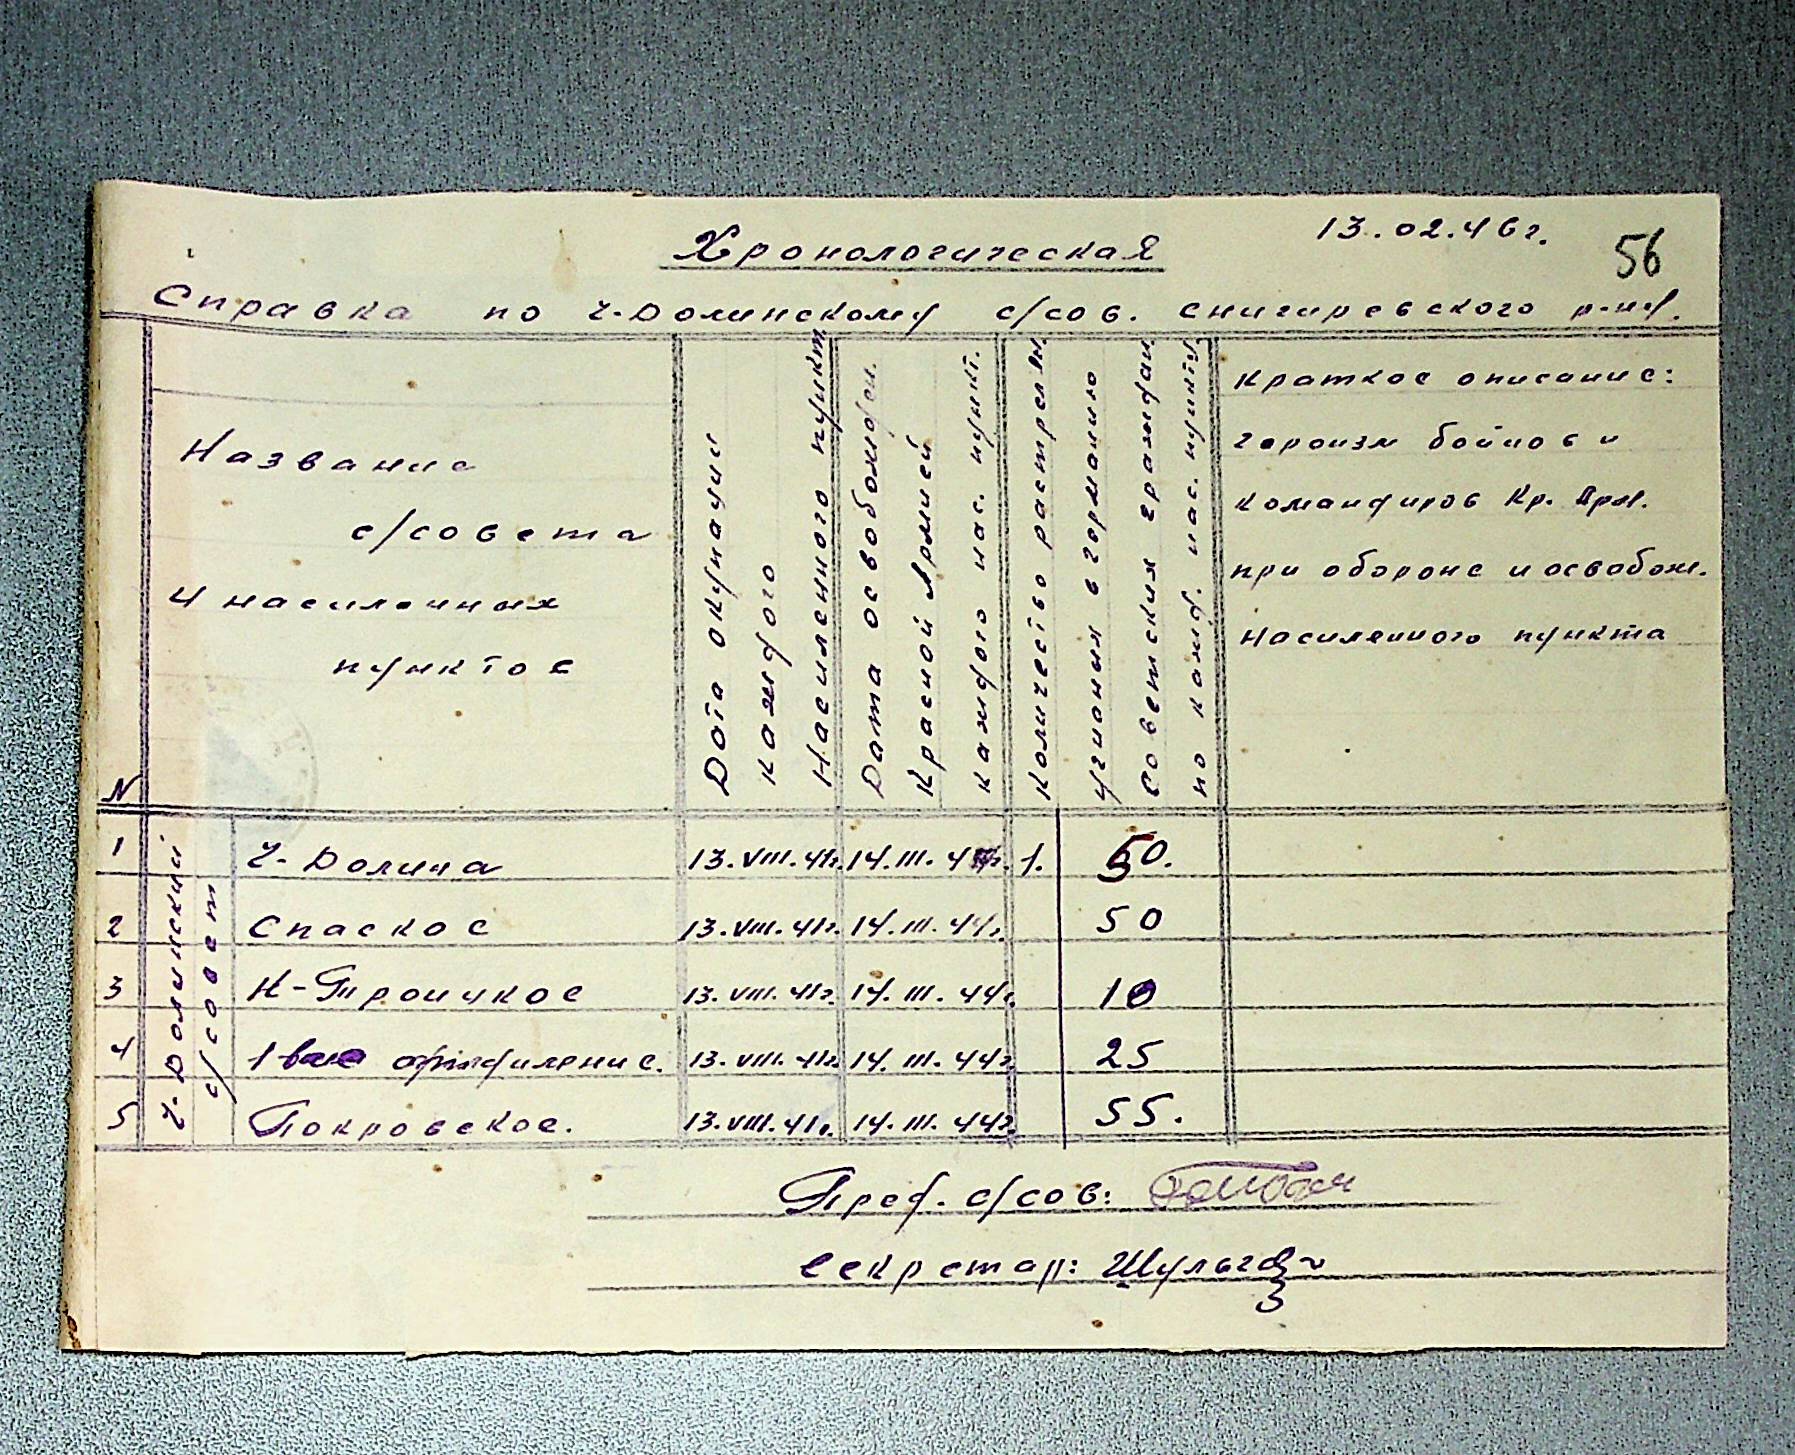 13.02.46г.
56
Хронологическая
Справка по Ч-Долинскому с/сов. Снигиревского р-на.
N
Название
с/совета
и насиленных
пунктов
Дата окупации
каждого
Насиленного пункт
Дата освобожден.
Красной Армией
каждого нас. пункт.
Количество растрелян
угнония в германию
Советския граждан
по кажд. нас. пункту
Краткое описание:
героизм бойцов и
командиров Кр. Арм.
при обороне и освобож.
Насиленного пункта
Ч-Долинский
с/совет
1 Ч-Долина 13.VIII.41г. 14.III.44г. 1. 50.
2 Спаское 13.VIII.41г. 14.III.44г. 50
3 Н-Троицкое 13.VIII.41г. 14.III.44г. 10
4 1 вое 13.VIII.41г. 14.III.44г. 25
5 Покровское. 13.VIII.41г. 14.III.44г. 55.
Пред. с/сов:
Секретар: Шульга